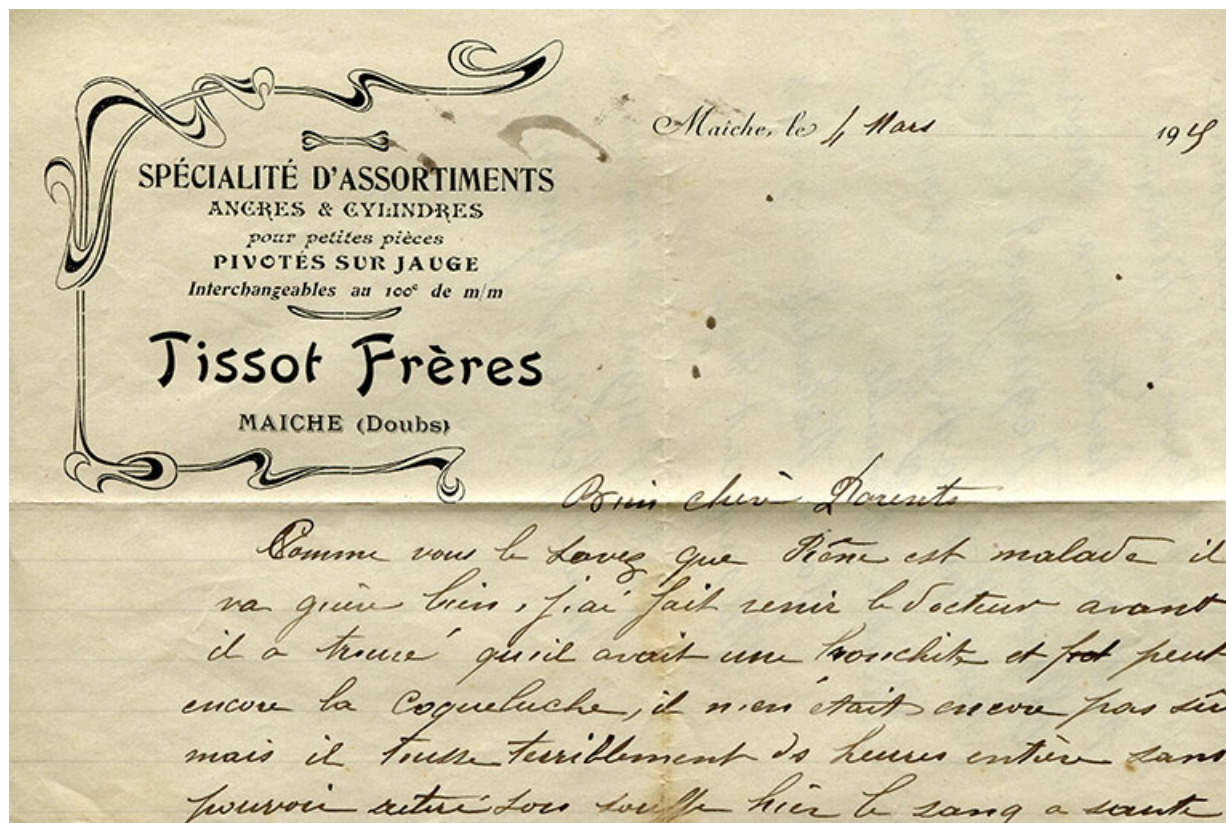 SPÉCIALITÉ D'ASSORTIMENTS
ANCRES & CYLINDRES
pour petites pièces
PIVOTÉS SUR JAUGE
Interchangeables au 100e de m/m
Tissot Frères
MAICHE (Doubs)
Maîche, le 4 Mars 191
Bien chers Parents
Comme vous le savez que est malade il
va guère bien, j'ai fait venir le docteur avant
il a trouvé qu'il avait une bronchite et peut
encore la coqueluche, il n'en était encore pas sûr
mais il tousse terriblement ds heures entière sans
pouvoir son souffle hier le sang a sauté